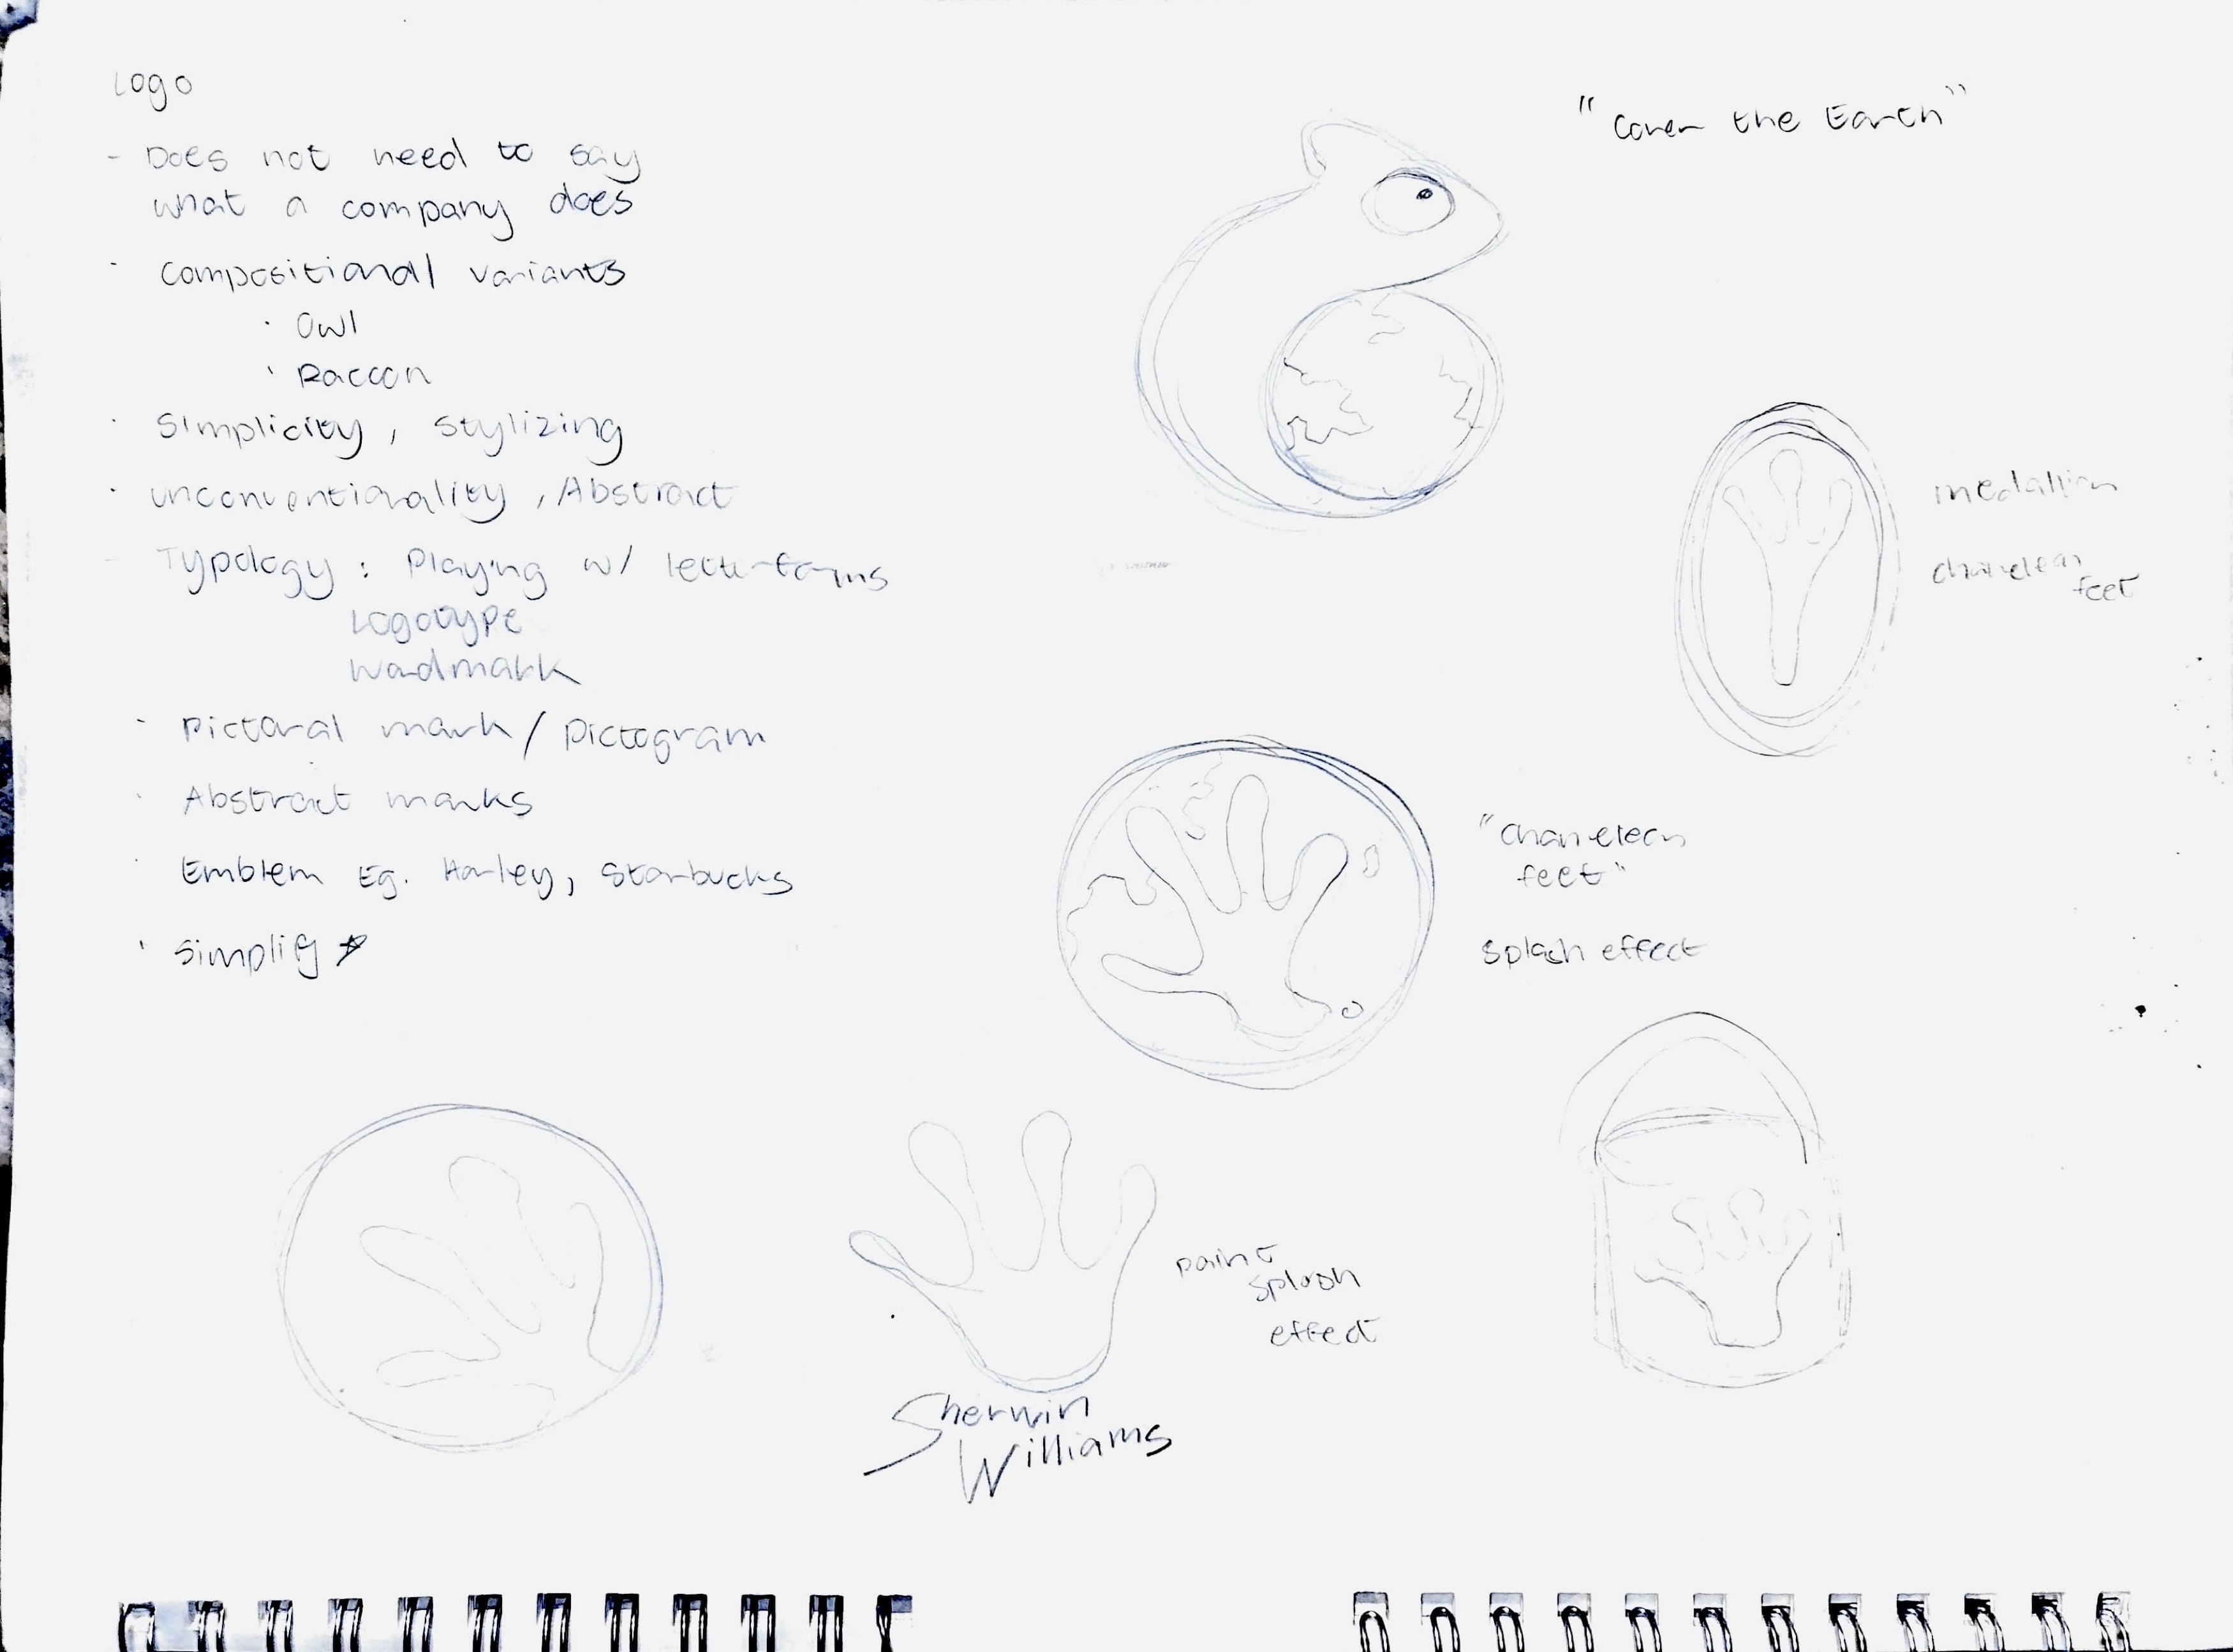 Logo
- Does not need to say
what a company does
- compositional variants
· Owl
· Raccon
· Simplicity, Stylizing
· unconventionality, Abstract
- Typology: Playing w/ letterforms
Logotype
Wordmark
- Pictoral mark / Pictogram
· Abstract marks
· Emblem Eg. Harley, Starbucks
· Simplify
"Cover the Earth"
medallion
chameleon
feet
"chameleon
feet"
splash effect
paint
splash
effect
Sherwin
Williams